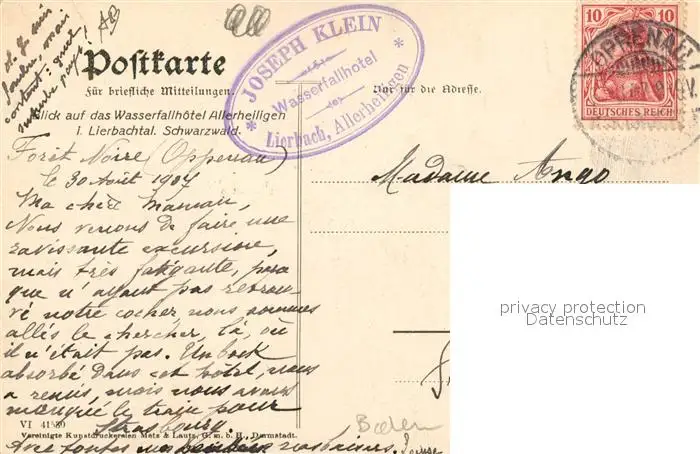 Postkarte
Für briefliche Mitteilungen.
Nur für die Adresse.
Blick auf das Wasserfallhôtel Allerheiligen
i. Lierbachtal. Schwarzwald.
JOSEPH KLEIN
Wasserfallhotel
* Lierbach, Allerheiligen *
10 10
DEUTSCHES REICH
OPPENAU
Forêt Noire (Oppenau)
le 30 Août 1907
Ma chère maman,
Nous venons de faire une
ravissante excursion,
mais très fatigante, parce
que n'ayant pas retrou-
vé notre cocher nous sommes
allés le chercher, là, où
il n'était pas. Un bock
absorbé dans cet hôtel, nous
a remis, mais nous avons
manqué le train pour
Strasbourg.
Avec toutes nos
Madame Ango
privacy protection
Datenschutz
Baden
VI 41580
Vereinigte Kunstdruckereien Metz & Lautz, G. m. b. H., Darmstadt.